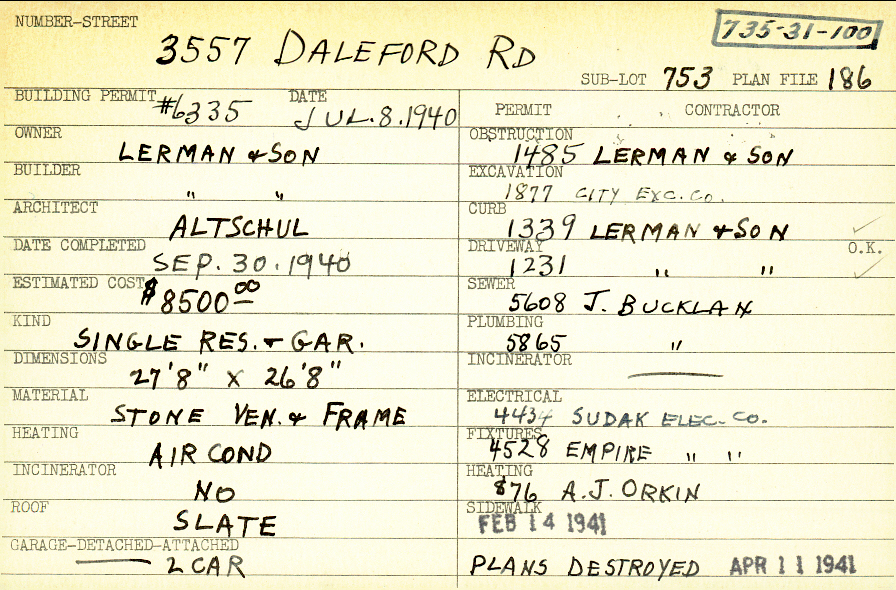 NUMBER-STREET
735-31-100
3557 DALEFORD RD
SUB-LOT 753 PLAN FILE 186
BUILDING PERMIT #6335 DATE JUL. 8. 1940
PERMIT CONTRACTOR
OWNER
LERMAN & SON
OBSTRUCTION
1485 LERMAN & SON
BUILDER
" "
EXCAVATION
1877 CITY EXC. CO.
ARCHITECT
ALTSCHUL
CURB
1339 LERMAN & SON ✓
DATE COMPLETED
SEP. 30. 1940
DRIVEWAY O.K.
1231 " " ✓
ESTIMATED COST
$8500 00
SEWER
5608 J. BUCKLAN
KIND
SINGLE RES. & GAR.
PLUMBING
5865 "
DIMENSIONS
27'8" X 26'8"
INCINERATOR
MATERIAL
STONE VEN. & FRAME
ELECTRICAL
4434 SUDAK ELEC. CO.
HEATING
AIR COND
FIXTURES
4528 EMPIRE " "
INCINERATOR
NO
HEATING
876 A.J. ORKIN
ROOF
SLATE
SIDEWALK
FEB 14 1941
GARAGE-DETACHED-ATTACHED
2 CAR
PLANS DESTROYED APR 11 1941